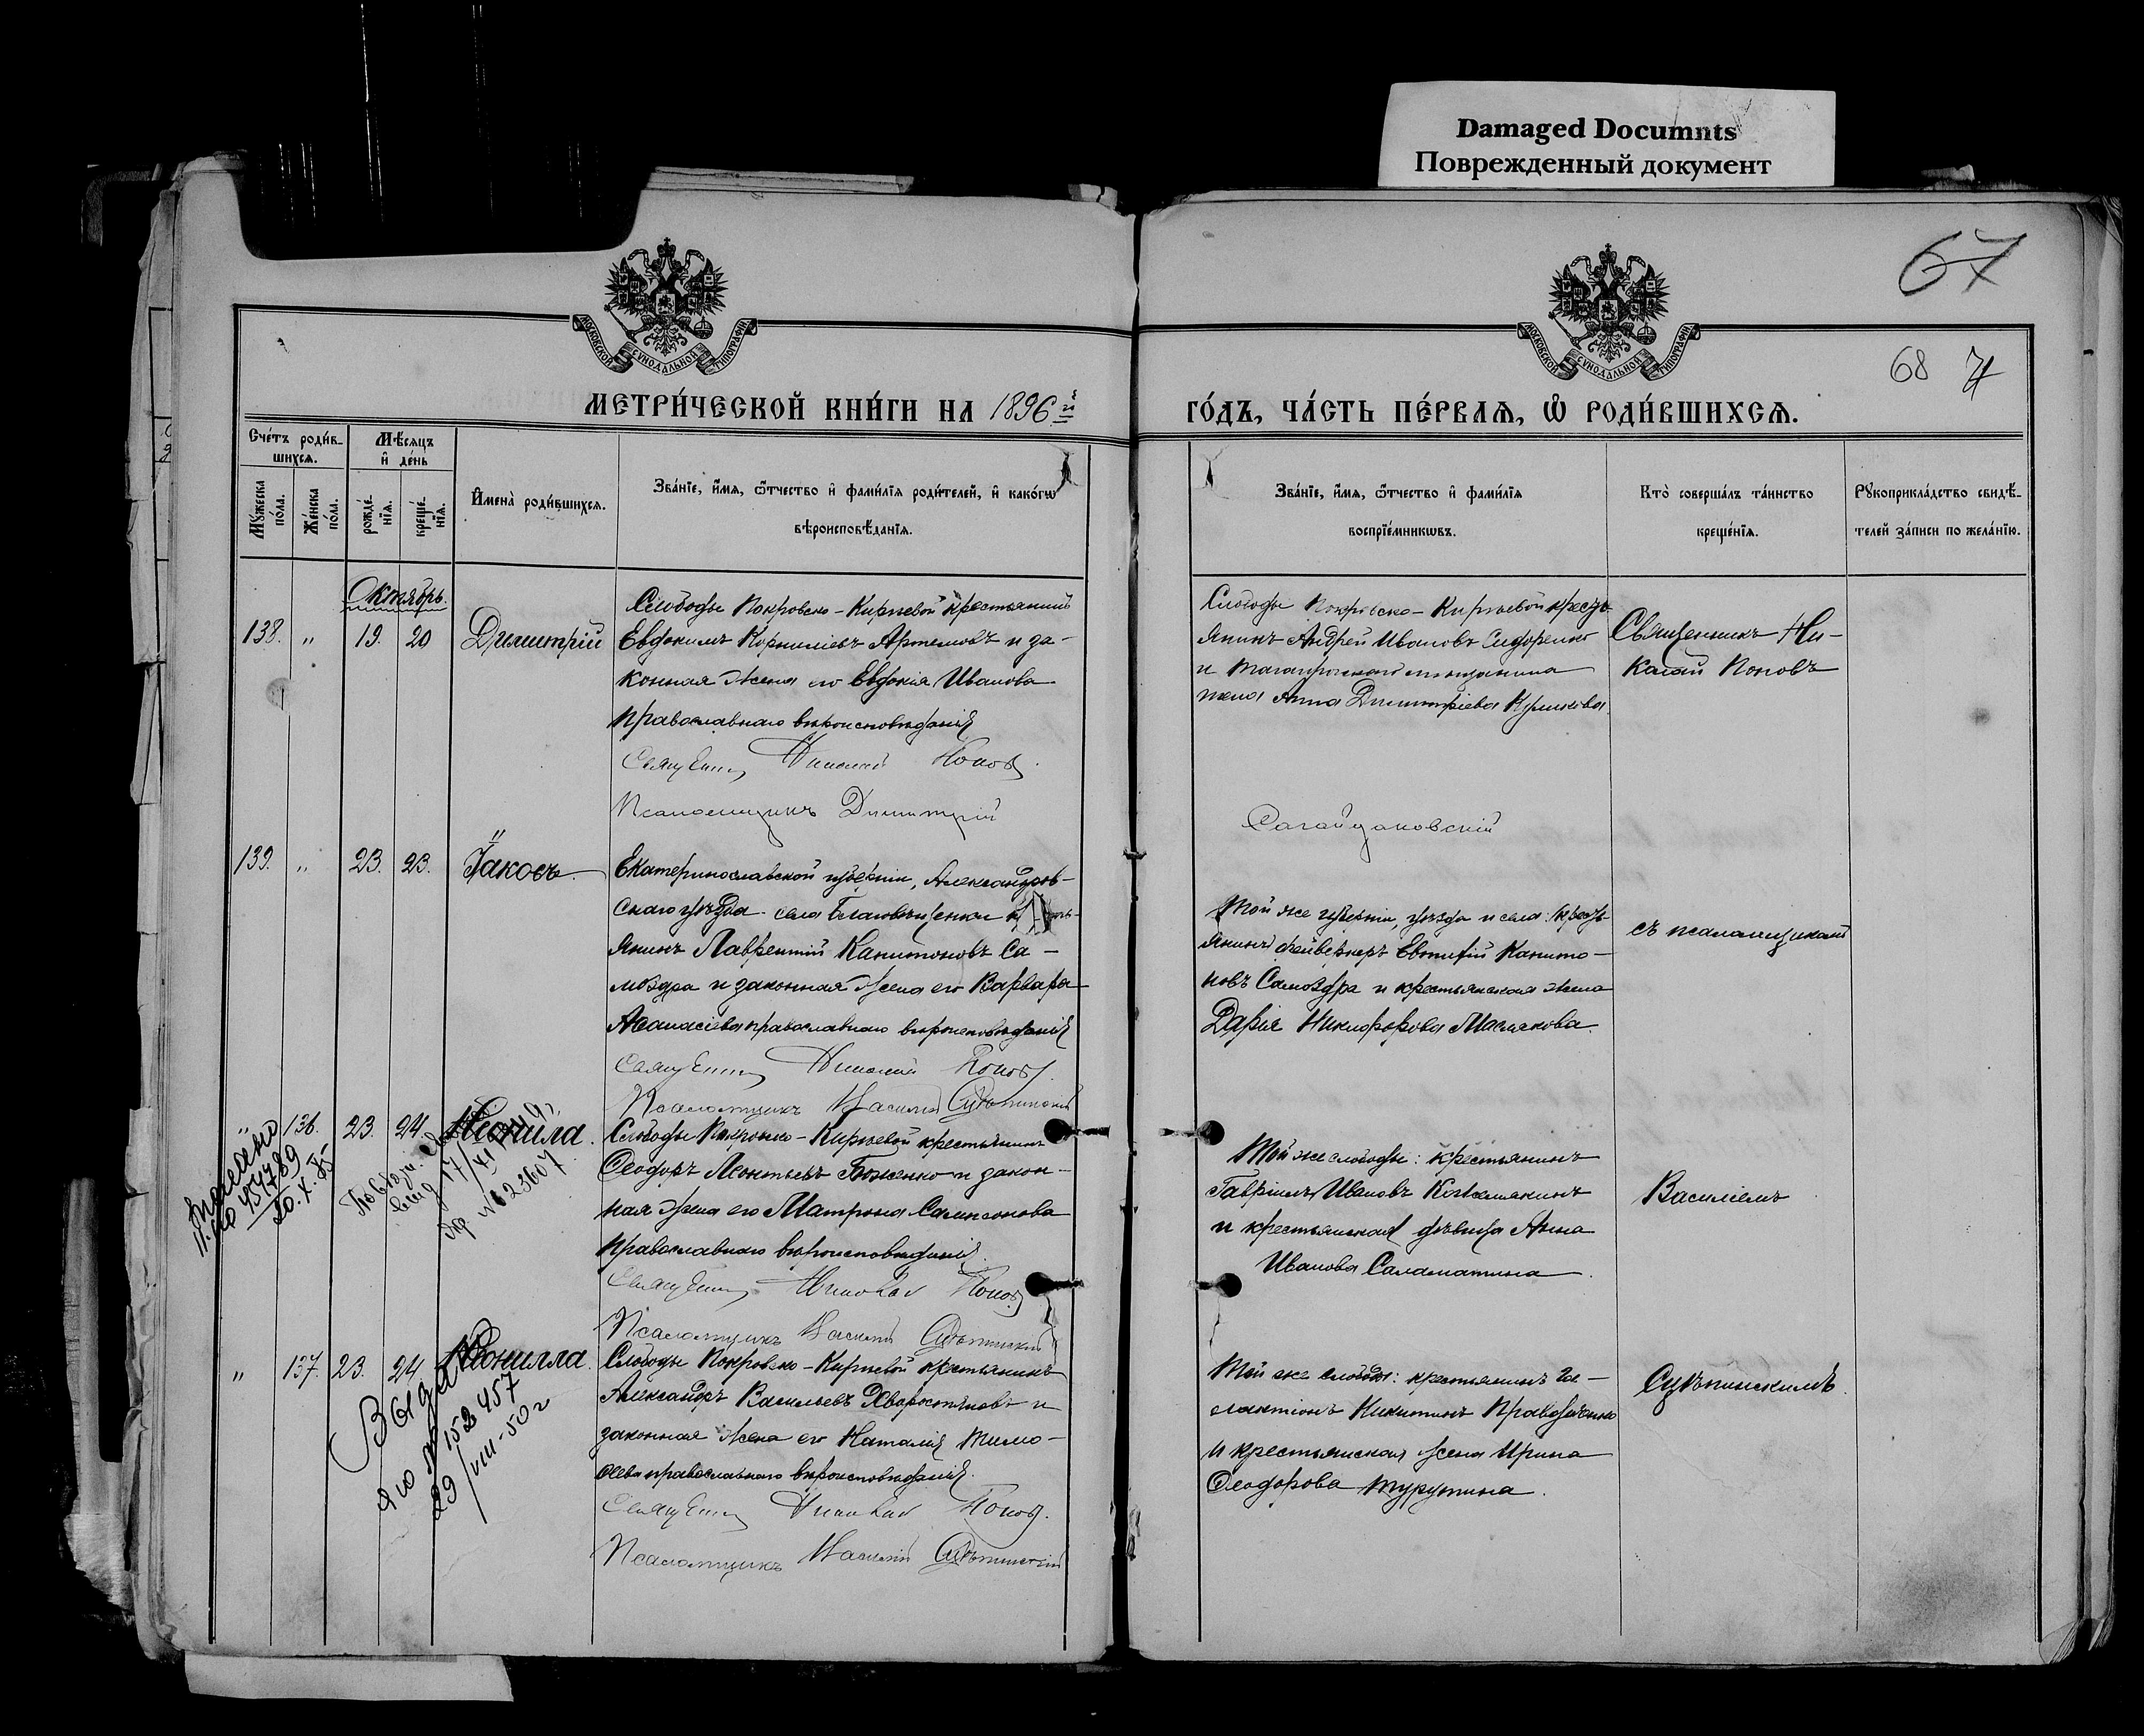 Damaged Documnts
Поврежденный документ
67
68
МОСКОВСКОЙ СѴНОДАЛЬНОЙ ТИПОГРАФІИ
МОСКОВСКОЙ СѴНОДАЛЬНОЙ ТИПОГРАФІИ
МЕТРИ́ЧЕСКОЙ КНИ́ГИ НА 1896й
ГО́ДЪ, ЧА́СТЬ ПЕ́РВАѦ, Ѽ РОДИ́ВШИХСѦ.
Сче́тъ роди́в-
шихсѧ.
Му́жеска по́ла.
Же́нска по́ла.
Мѣ́сѧцъ
и҆ де́нь
рожде́-нїѧ.
креще́-нїѧ.
И҆мена̀ роди́вшихсѧ.
Зва́нїе, и҆́мѧ, ѻ҆́тчество и҆ фами́лїѧ роди́телей, и҆ како́гѡ
вѣроисповѣ́данїѧ.
Зва́нїе, и҆́мѧ, ѻ҆́тчество и҆ фами́лїѧ
воспрїе́мникѡвъ.
Кто̀ соверша́лъ та́инство
креще́нїѧ.
Рꙋкоприкла́дство свидѣ́-
телей за́писи по жела́нїю.
Октябрь.
138. " 19. 20 Димитрій
Слободы Покровско-Киреевой крестьянинъ
Евдокимъ Корниліевъ Артемовъ и за-
конная жена его Евдокія Иванова
православнаго вѣроисповѣданія
Священникъ Николай Поповъ.
Псаломщикъ Димитрій
Слободы Покровско-Киреевой кресть-
янинъ Андрей Ивановъ Сидоренко
и таганрогскаго мѣщанина
жена Анна Димитріева Куликова.
Сагайдаковскій
Священникъ Ни-
колай Поповъ
139. " 23. 23. Іаковъ
Екатеринославской губерніи, Александров-
скаго уѣзда села Благовѣщенки
янинъ Лаврентій Капитоновъ Са-
моздра и законная жена его Варвара
Аѳанасіева православнаго вѣроисповѣданія
Священникъ Николай Поповъ.
Псаломщикъ Василій Сцѣпинскій
Той же губерніи, уѣзда и села: кресть-
янинъ фейверкеръ Евтихій Капито-
новъ Самоздра и крестьянская жена
Дарія Никифорова Маслакова.
съ псаломщикомъ
" 136. 23. 24. Неонила.
Слободы Покровско-Киреевой крестьянинъ
Ѳеодоръ Леонтьевъ Боженко и закон-
ная жена его Матрона Самсонова
православнаго вѣроисповѣданія.
Священникъ Николай Поповъ
Псаломщикъ Василій Сцѣпинскій
Той же слободы: крестьянинъ
Гавріилъ Ивановъ Кожемякинъ
и крестьянская дѣвица Анна
Иванова Саламатина.
Василіемъ
№ 23607
" 137. 23. 24. Неонилла.
Слободы Покровско-Киреевой крестьянинъ
Александръ Васильевъ Хворостяновъ и
законная жена его Наталія Тимо-
ѳеева православнаго вѣроисповѣданія.
Священникъ Николай Поповъ.
Псаломщикъ Василій Сцѣпинскій
Той же слободы: крестьянинъ Га-
лактіонъ Никитинъ
и крестьянская жена Ирина
Ѳеодорова Турутина.
Сцѣпинскимъ.
Выдано
ЯЮ № 152457
29/VIII-50 г